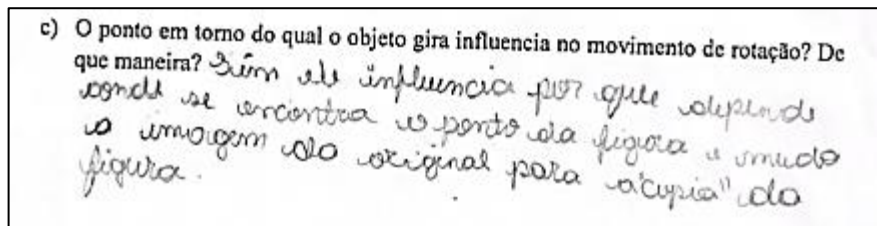 c) O ponto em torno do qual o objeto gira influencia no movimento de rotação? De
que maneira? Sim ele influencia por que depende
aonde se encontra o ponto da figura e muda
a imagem do original para a "cupia" da
figura.